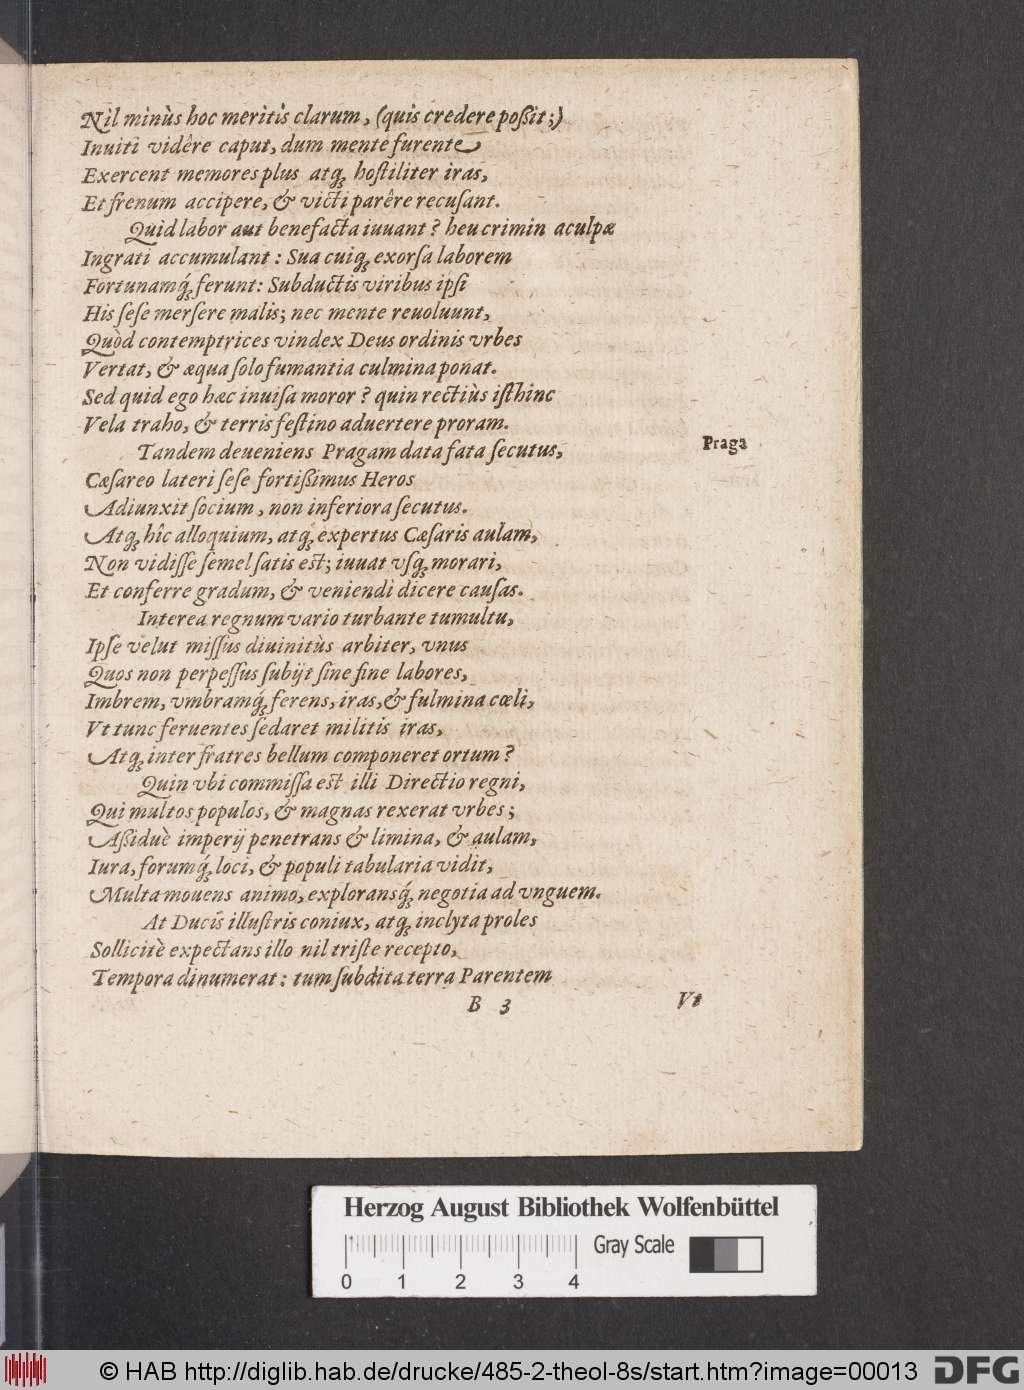 Nil minùs hoc meritis clarum, (quis credere poßit;)
Inuiti vidêre caput, dum mente furente
Exercent memores plus atq; hoſtiliter iras,
Et frenum accipere, & victi parêre recuſant.
Quid labor aut benefacta iuuant? heu crimin aculpæ
Ingrati accumulant: Sua cuiq; exorſa laborem
Fortunamq́; ferunt: Subductis viribus ipſi
His ſeſe merſere malis; nec mente reuoluunt,
Quòd contemptrices vindex Deus ordinis vrbes
Vertat, & æqua ſolo fumantia culmina ponat.
Sed quid ego hæc inuiſa moror? quin rectiùs iſthinc
Vela traho, & terris feſtino aduertere proram.
Tandem deueniens Pragam data fata ſecutus,
Praga
Cæſareo lateri ſeſe fortißimus Heros
Adiunxit ſocium, non inferiora ſecutus.
Atq; hîc alloquium, atq; expertus Cæſaris aulam,
Non vidiſſe ſemel ſatis eſt; iuuat vſq; morari,
Et conferre gradum, & veniendi dicere cauſas.
Interea regnum vario turbante tumultu,
Ipſe velut miſſus diuinitùs arbiter, vnus
Quos non perpeſſus ſubijt ſine fine labores,
Imbrem, vmbramq́; ferens, iras, & fulmina cœli,
Vt tunc feruentes ſedaret militis iras,
Atq; inter fratres bellum componeret ortum?
Quin vbi commiſſa eſt illi Directio regni,
Qui multos populos, & magnas rexerat vrbes;
Aßiduè imperij penetrans & limina, & aulam,
Iura, forumq́; loci, & populi tabularia vidit,
Multa mouens animo, exploransq́; negotia ad vnguem.
At Ducis illuſtris coniux, atq; inclyta proles
Sollicitè expectans illo nil triſte recepto,
Tempora dinumerat: tum ſubdita terra Parentem
B 3
Vt
Herzog August Bibliothek Wolfenbüttel
Gray Scale
0 1 2 3 4
© HAB http://diglib.hab.de/drucke/485-2-theol-8s/start.htm?image=00013
DFG